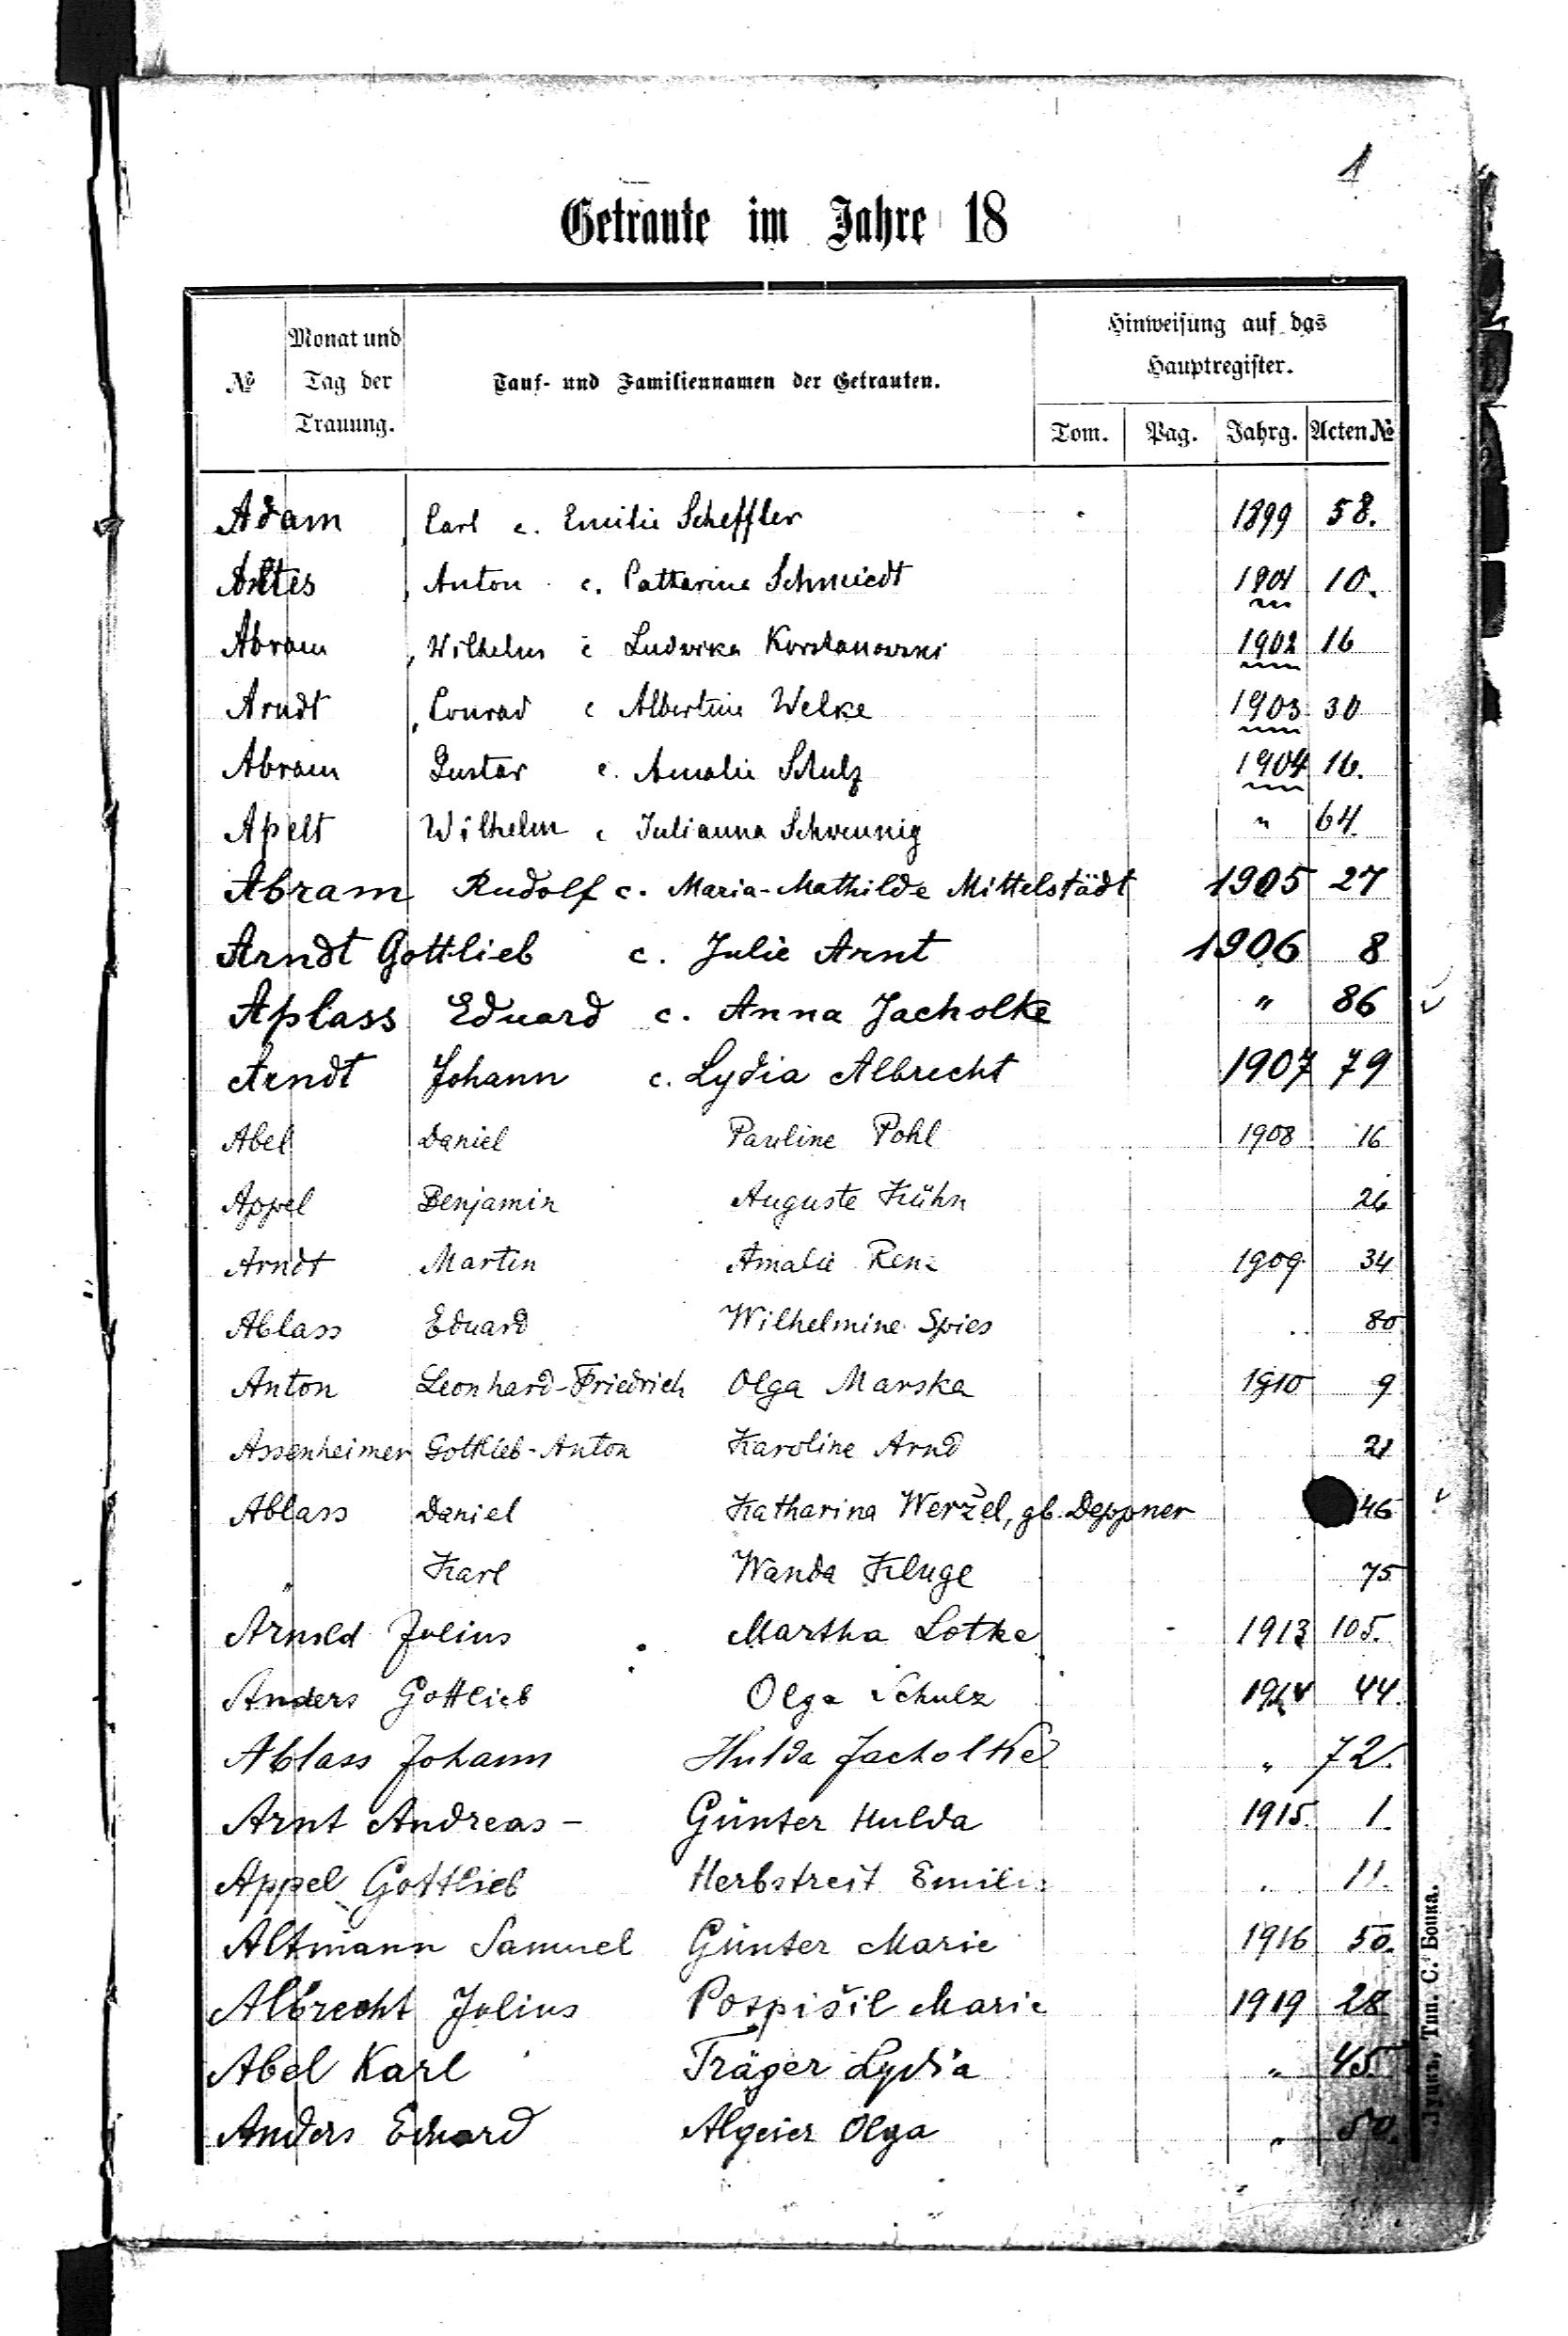 1
Getraute im Jahre 18
№ Monat und Tag der Trauung. Tauf- und Familiennamen der Getrauten. Hinweisung auf das Hauptregister.
Tom. Pag. Jahrg. Acten №
Adam Carl c. Emilie Scheffler 1899 58.
Anton c. Catharina Schmiedt 1901 10.
Abram Wilhelm c Ludwika 1902 16
Arndt Conrad c Albertine Welke 1903 30
Abram Gustav c. Amalie Schulz 1904 16.
Apelt Wilhelm c Julianna Schreunig " 64.
Abram Rudolf c. Maria-Mathilde Mittelstädt 1905 27
Arndt Gottlieb c. Julie Arnt 1906 8
Aplass Eduard c. Anna Jacholke " 86
Arndt Johann c. Lydia Albrecht 1907 79
Abel Daniel Pauline Pohl 1908 16
Appel Benjamin Auguste Kühn 26
Arndt Martin Amalie Renz 1909 34
Ablass Eduard Wilhelmine Spies .. 80
Anton Leonhard-Friedrich Olga Marska 1910 9
Assenheimer Gottlieb-Anton Karoline Arnd 21
Ablass Daniel Katharina Weržel, gb. Deppner 46
" Karl Wanda Kluge 75
Arnold Julius Martha Lotke 1913 105.
Anders Gottlieb Olga Schulz 1914 44.
Ablass Johann Hulda Jacholke " 72.
Arnt Andreas - Günter Hulda 1915. 1.
Appel Gottlieb Herbstreit Emilie " 11.
Altmann Samuel Günter Marie 1916 50.
Albrecht Julius Pospišil Marie 1919 28
Abel Karl Träger Lydia " 45.
Anders Eduard Algeier Olga " 50.
Луцкъ, Тип. С. Бонка.